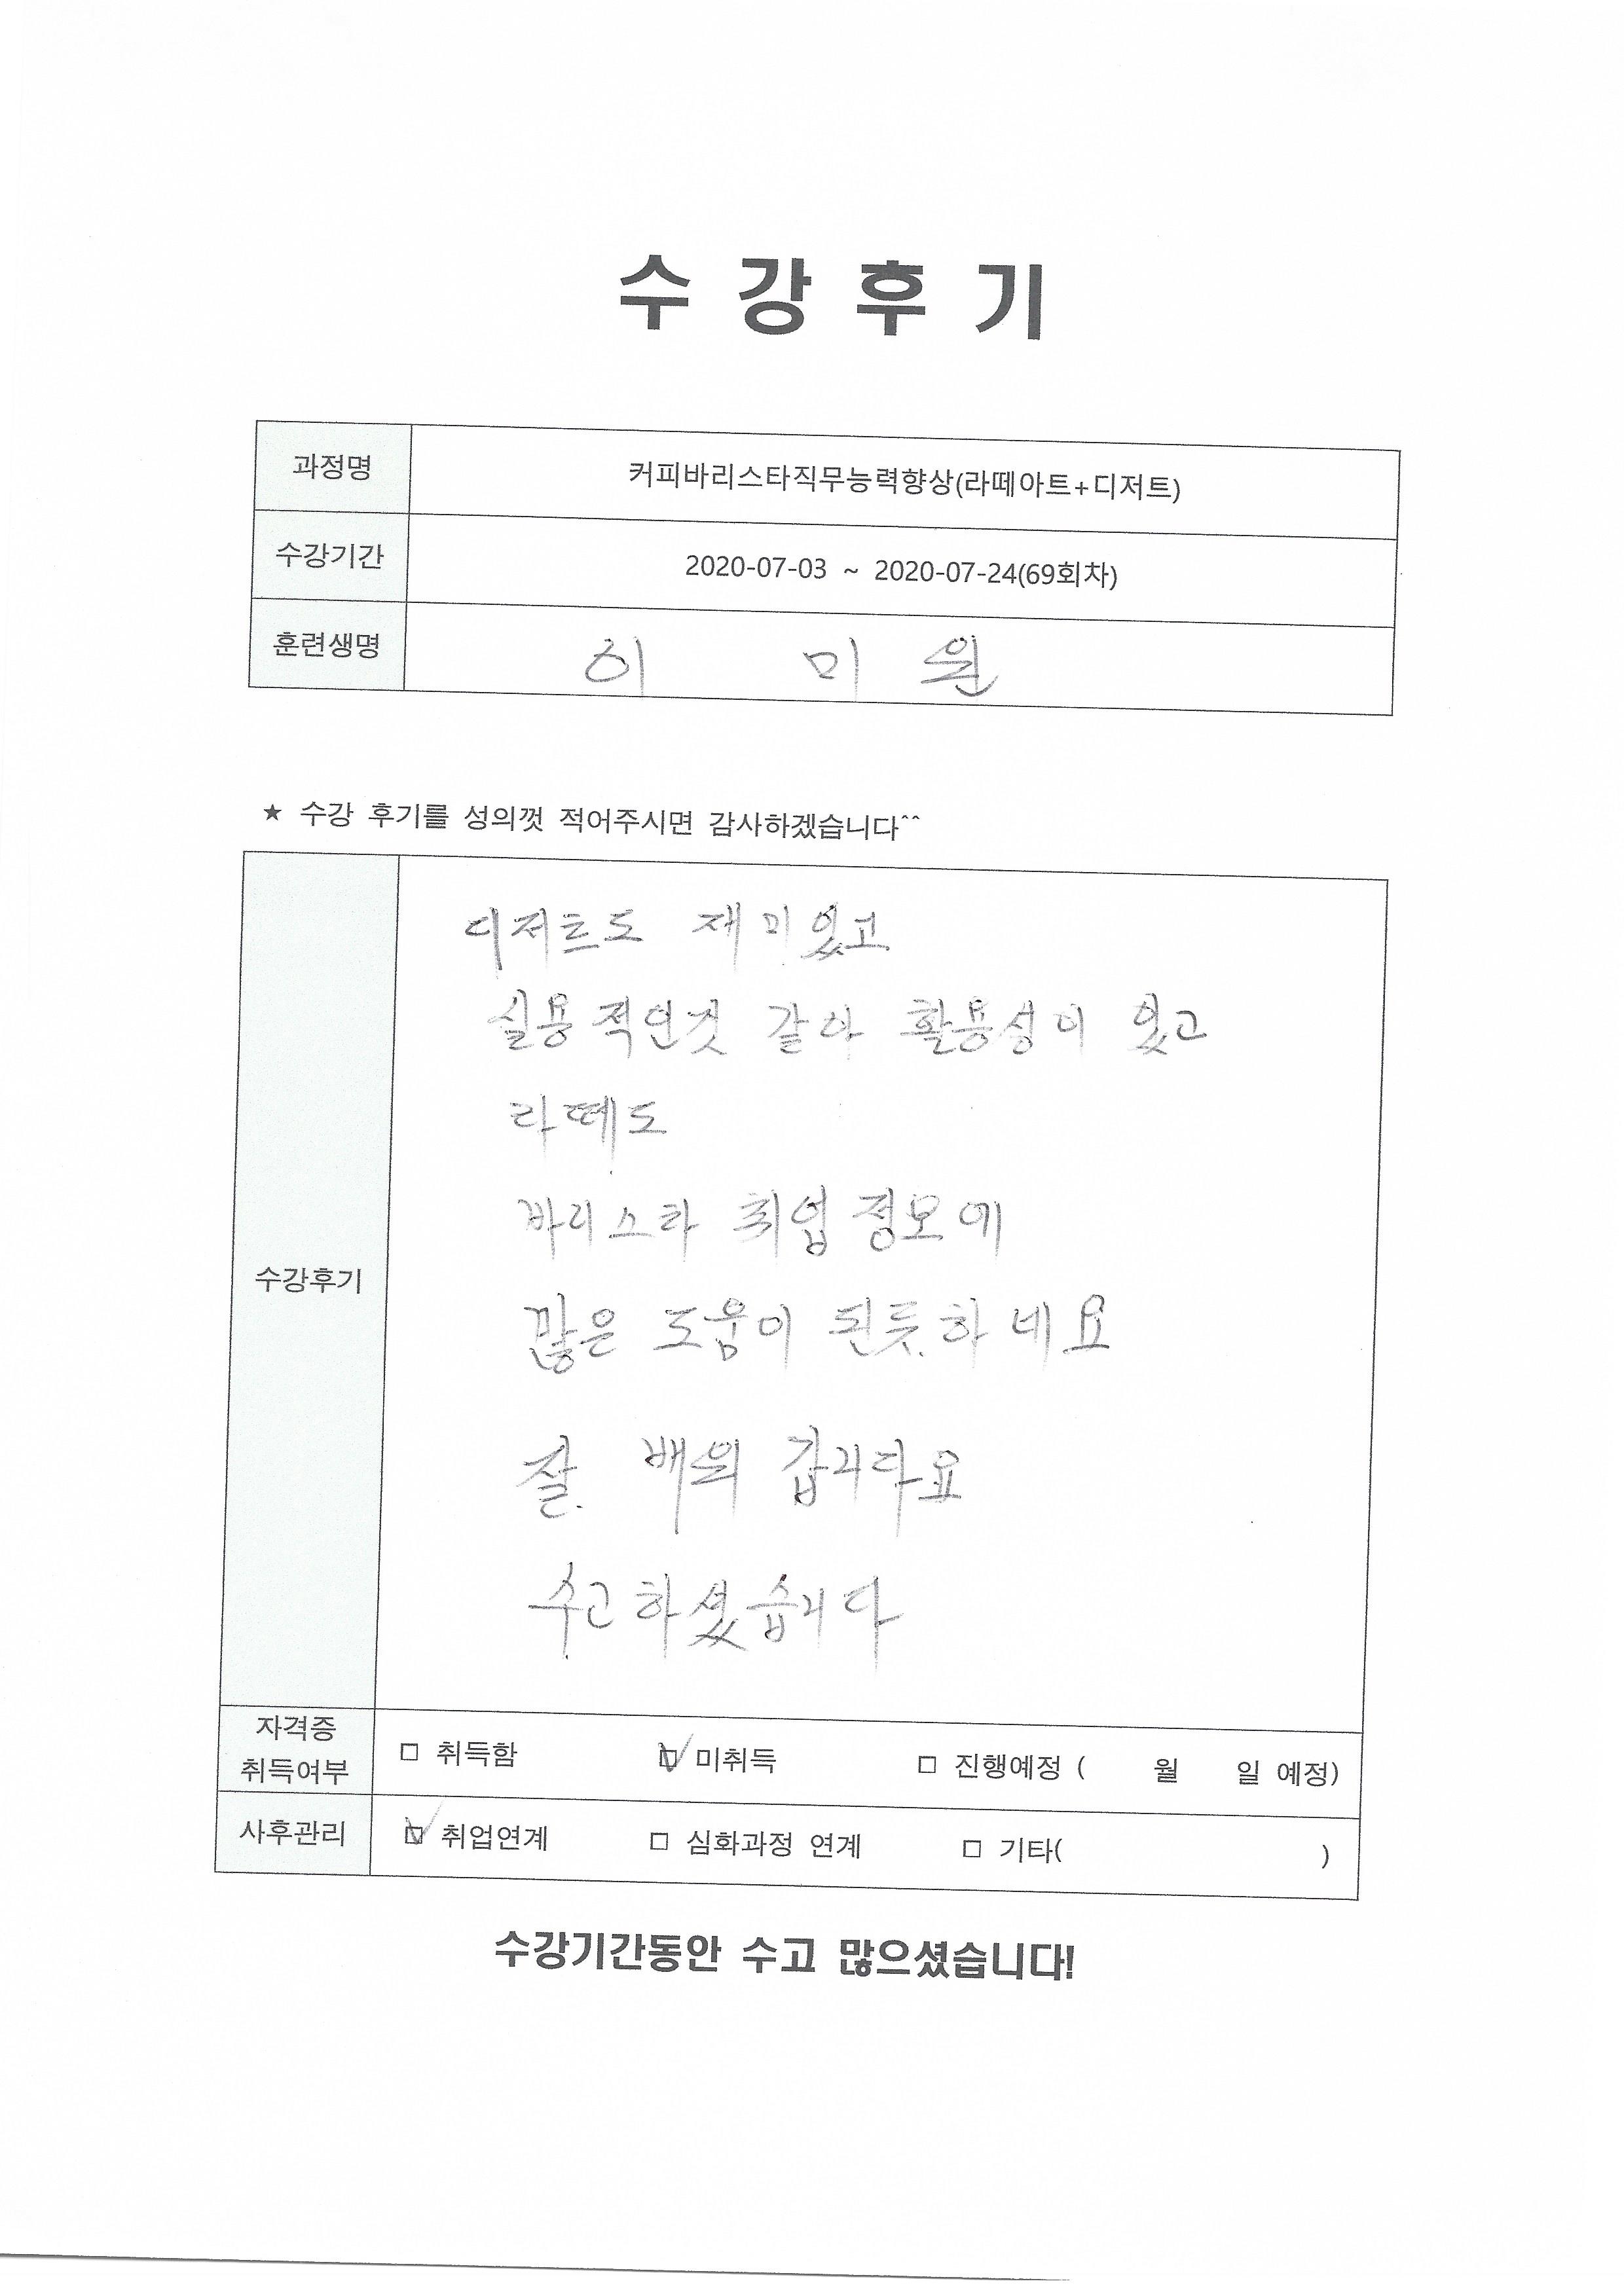 수 강 후 기
과정명 커피바리스타직무능력향상(라떼아트+디저트)
수강기간 2020-07-03 ~ 2020-07-24(69회차)
훈련생명 이 미 원
★ 수강 후기를 성의껏 적어주시면 감사하겠습니다^^
수강후기
디저트도 재미있고
실용적인것 같아 활용성이 있고
라떼도
바리스타 취업 정보에
많은 도움이 된듯.하네요
잘. 배워 갑니다요
수고하셨습니다
자격증
취득여부
□ 취득함 □ 미취득 □ 진행예정 ( 월 일 예정)
사후관리 □ 취업연계 □ 심화과정 연계 □ 기타( )
수강기간동안 수고 많으셨습니다!